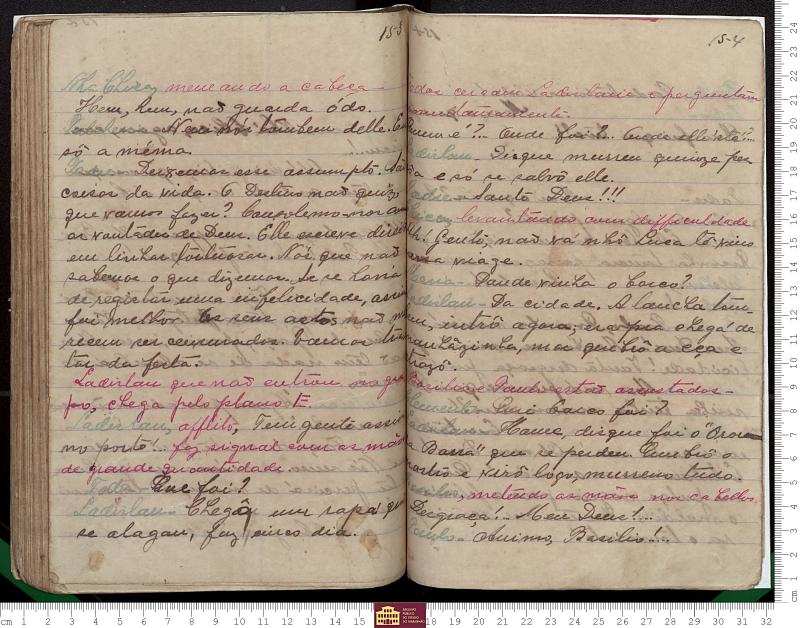 153
Nhá Chica, meneando a cabeça -
Hem, hem, não guarda ódo.
Nem nós tambem delle. E
só a méma.
Deixemos esse assumpto. São
coisas da vida. O Destino não quiz,
que vamos fazer? Consolemo-nos com
as vontades de Deus. Elle escreve direito
em linhas tortuosas. Nós que não
sabemos o que dizemos. Se se havia
de registar uma infelicidade, assim
foi melhor. Os seus actos não me
recem ser censurados. Vamos tra
tar da festa.
Ladislau que não entrou no gru
po, chega pelo plano E.
Ladislau, afflito, Tem gente assim
no porto!.. faz signal com as mãos
de grande quantidade.
Todos - Que foi?
Ladislau - Chegô um rapaz que
se alagou, faz cinco dia.
154
Todos cercam Ladislau e perguntam
Quem é?... Onde foi?.. Onde elle 'stá?...
Ladislau - Disque murreu quinze pes
sôa e só se salvô elle.
Santo Deus!!!
Chica, levantando com difficuldade
Ih! Gentes, não vá nhô Luca tô vino
nessa viaze.
Maria - Daude vinha o barco?
Ladislau - Da cidade. A lancha tam
bem, intrô agora; era pra chegá de
manhãzinha, mas quebrô a eça e
trazô.
Basilio e Paulo estão assustados -
Que barco foi?
Ladislau - Home, disque foi o
Barra" que se perdeu. Quebrô o
mastro e virô logo, murreno tudo.
Basilio, mettendo as mãos nos cabellos
Desgraça!.. Meu Deus!....
Paulo - Animo, Basilio!....